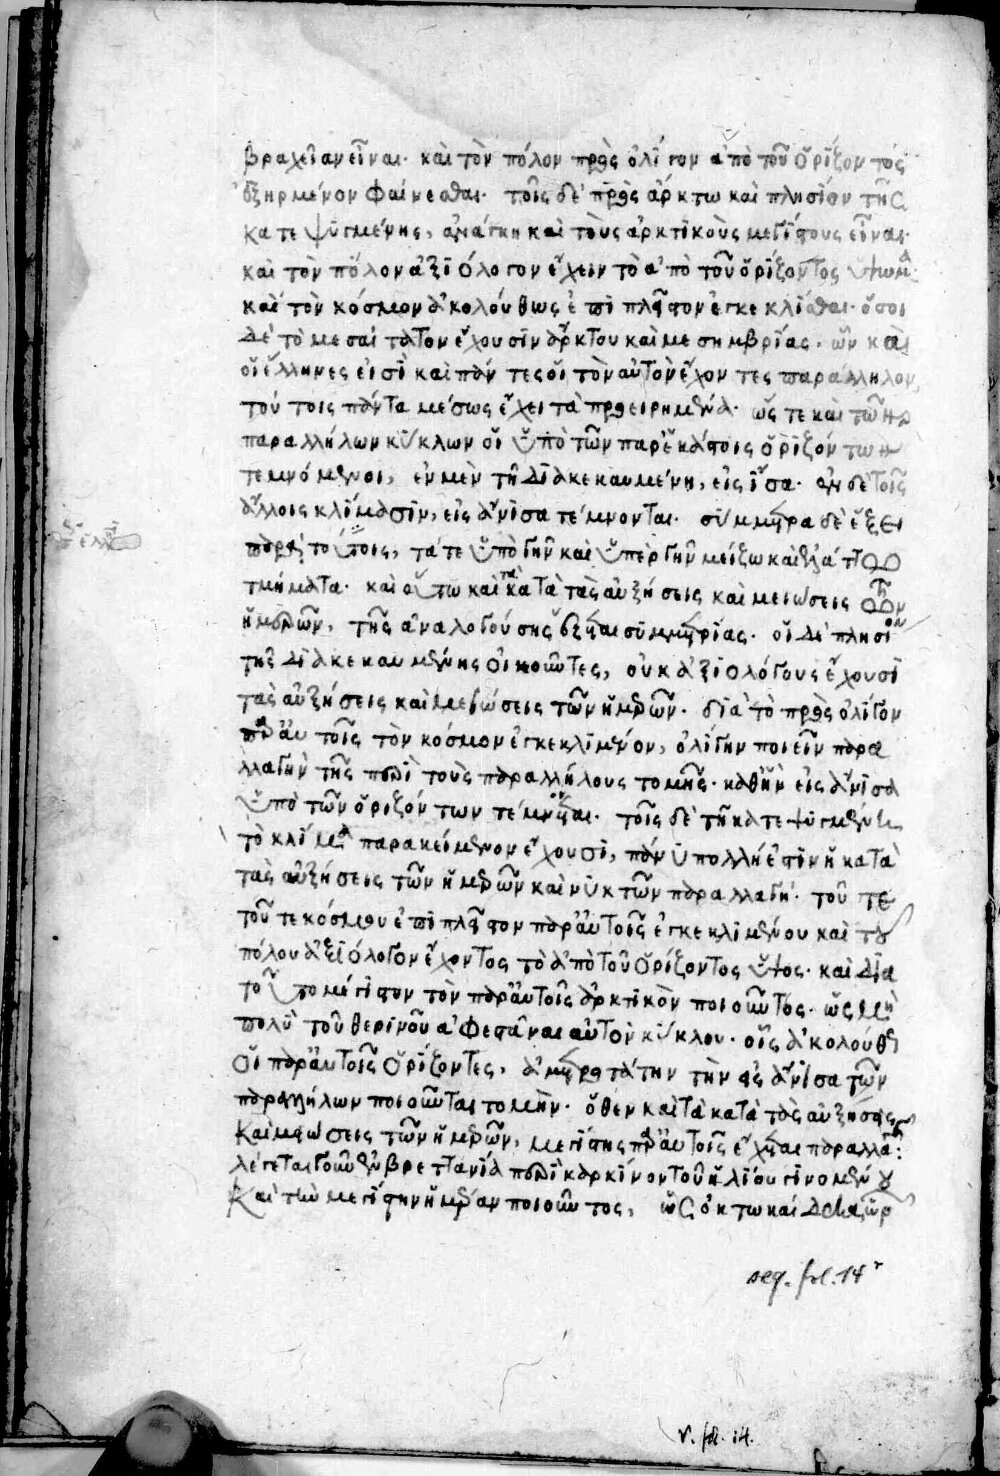 βραχεῖαν εἶναι· καὶ τὸν πόλον πρὸς ὀλίγον ἀπὸ τοῦ ὁρίζοντος
ἐξηρμένον φαίνεσθαι· τοῖς δὲ πρὸς ἄρκτω καὶ πλησίον τῆς
κατεψυγμένης, ἀνάγκη καὶ τοὺς ἀρκτικοὺς μεγίστους εἶναι·
καὶ τὸν πόλον ἀξιόλογον ἔχειν τὸ ἀπὸ τοῦ ὁρίζοντος ὕψωμα·
καὶ τὸν κόσμον ἀκολούθως ἐπὶ πλεῖστον ἐγκεκλίσθαι· ὅσοι
δὲ τὸ μεσαίτατον ἔχουσιν ἄρκτου καὶ μεσημβρίας· ὧν καὶ
οἱ ἕλληνες εἰσὶ καὶ πάντες οἱ τὸν αὐτὸν ἔχοντες παράλληλον,
τούτοις πάντα μέσως ἔχει τὰ προειρημένα· ὥς τε καὶ τῶν
παραλλήλων κύκλων οἱ ὑπὸ τῶν παρ' ἑκάστοις ὁριζόντων
τεμνόμενοι, ἐν μὲν τῇ διακεκαυμένη, εἰς ἴσα· ἐν δὲ τοῖς
ἄλλοις κλίμασιν, εἰς ἄνισα τέμνονται· σύμμετρα δὲ ἕξει
πρὸς τούτοις, τά τε ὑπὸ γῆν καὶ ὑπὲρ γῆν μείζω καὶ ἐλάττω
τμήματα· καὶ οὕτω καὶ τὰ κατὰ τὰς αὐξήσεις καὶ μειώσεις τῶν
ἡμερῶν, τῆς ἀναλογούσης ἕξεται συμμετρίας· οἱ δὲ πλησίον
τῆς διακεκαυμένης οἰκοῦντες, οὐκ ἀξιολόγους ἔχουσι
τὰς αὐξήσεις καὶ μειώσεις τῶν ἡμερῶν· διὰ τὸ πρὸς ὀλίγον
παρ' αὐτοῖς τὸν κόσμον ἐγκεκλιμένον, ὀλίγην ποιεῖν παρα
λλαγὴν τῆς περὶ τοὺς παραλλήλους τομῆς· καθ' ἣν εἰς ἄνισα
ὑπὸ τῶν ὁριζόντων τέμνονται· τοῖς δὲ τῇ κατεψυγμένη
τὸ κλίμα παρακείμενον ἔχουσι, πάνυ πολλή ἐστιν ἡ κατὰ
τὰς αὐξήσεις τῶν ἡμερῶν καὶ νυκτῶν παραλλαγή· τοῦ τε
τοῦ τε κόσμου ἐπὶ πλεῖστον παρ' αὐτοῖς ἐγκεκλιμένου καὶ τοῦ
πόλου ἀξιόλογον ἔχοντος τὸ ἀπὸ τοῦ ὁρίζοντος ὕψος· καὶ διὰ
τοῦτο μέγιστον τὸν παρ' αὐτοῖς ἀρκτικὸν ποιοῦντος· ὡς μὴ
πολὺ τοῦ θερινοῦ ἀφεστάναι αὐτὸν κύκλου· οἷς ἀκολούθως
οἱ παρ' αὐτοῖς ὁρίζοντες, ἀμετροτάτην τὴν εἰς ἄνισα τῶν
παραλλήλων ποιοῦνται τομήν· ὅθεν καὶ τὰ κατὰ τὰς αὐξήσεις
καὶ μειώσεις τῶν ἡμερῶν, μεγίστης παρ' αὐτοῖς ἔχεται παραλλαγῆς:
λέγεται γοῦν ἐν βρεττανία περὶ καρκίνον τοῦ ἡλίου γινομένου
καὶ τὴν μεγίστην ἡμέραν ποιοῦντος, ὡς ὀκτωκαίδεκα ὡρ
seq. fol. 14 r
v. fol. 14.